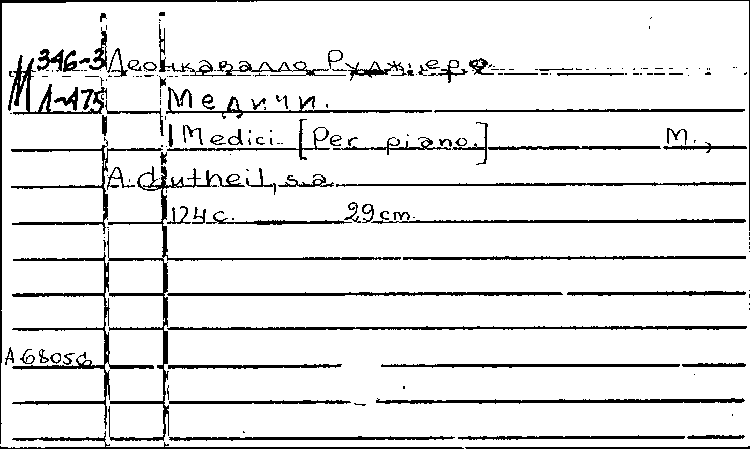 М 346-3 Леонкавалло Руджиеро
Л-475 Медичи.
I Medici [Per piano.] М.,
A. Gutheil, s.a.
174 с. 29 cm.
А 68056